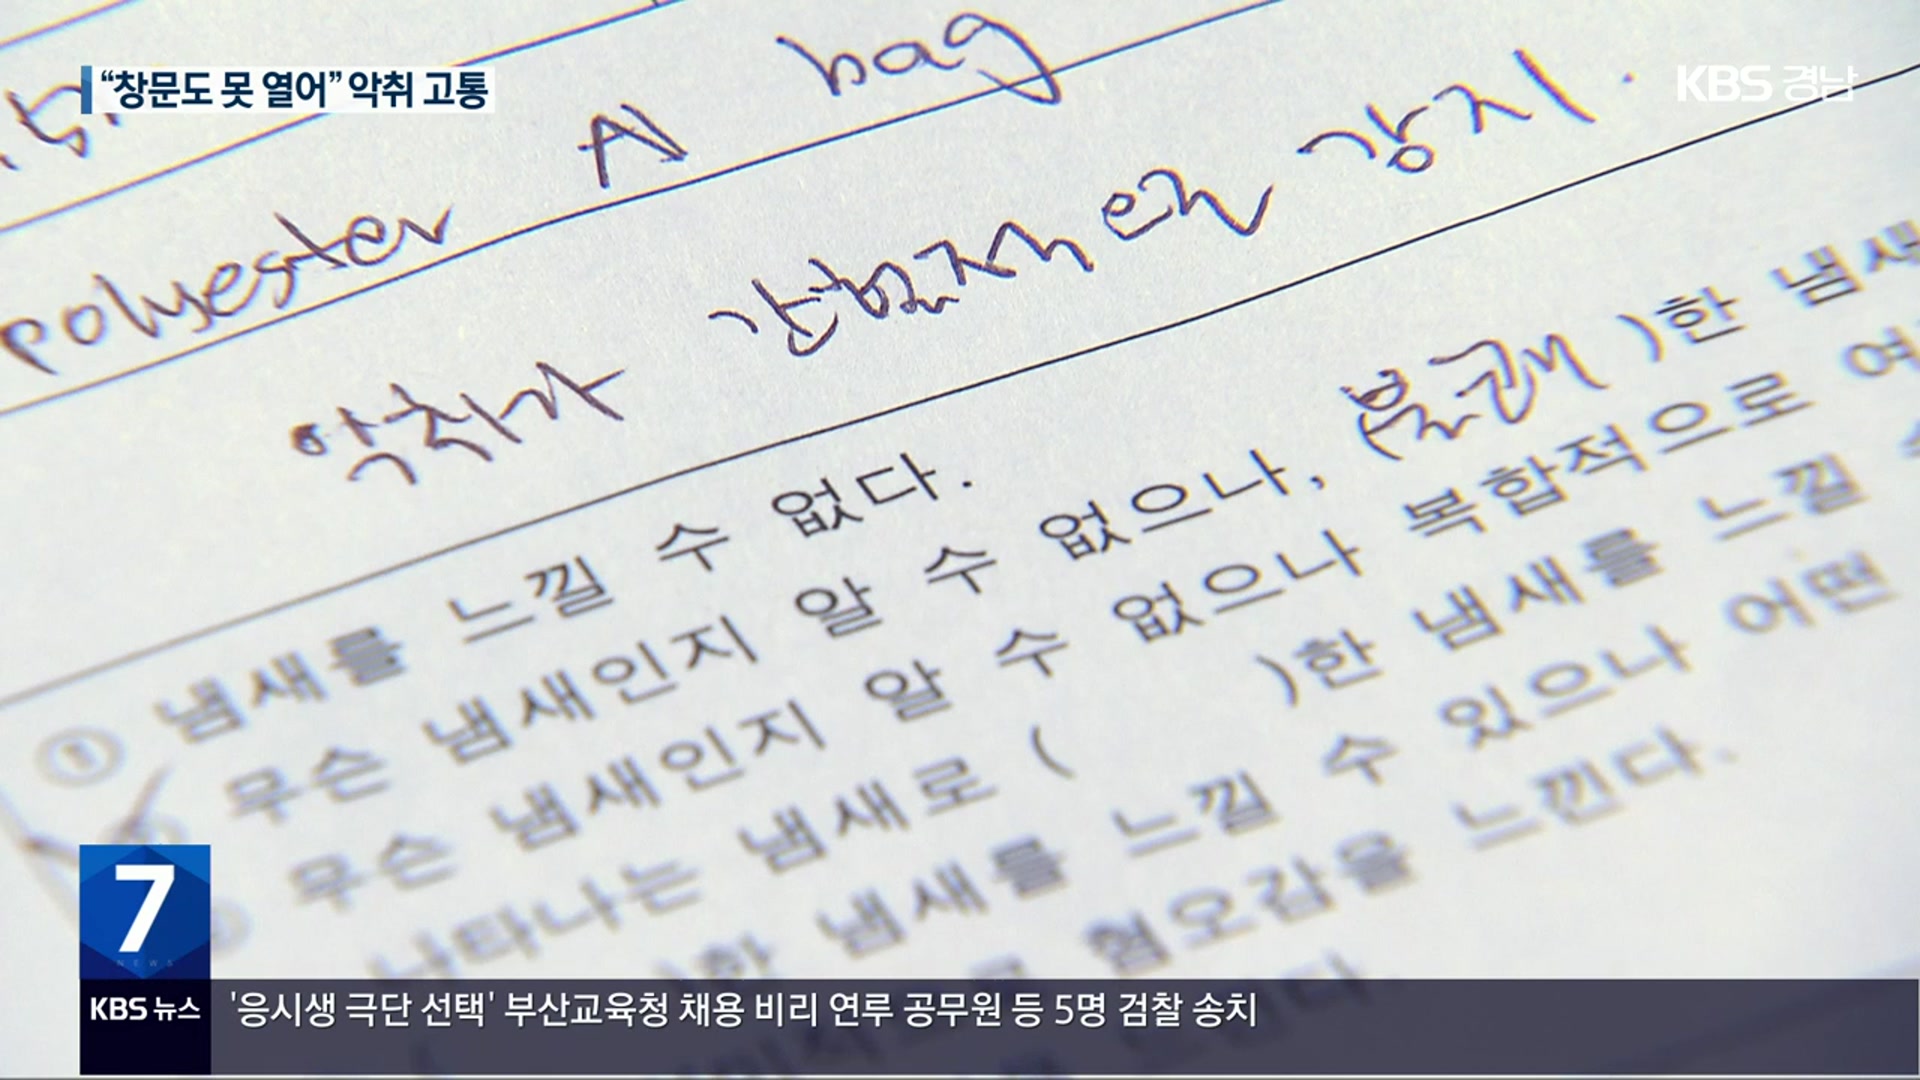 “창문도 못 열어” 악취 고통
KBS 경남
polyester Al bag
악취가 간헐적으로 감지.
① 냄새를 느낄 수 없다.
무슨 냄새인지 알 수 없으나, (불쾌 )한 냄새
무슨 냄새인지 알 수 없으나 복합적으로
나타나는 냄새로 ( )한 냄새를 느낄
한 냄새를 느낄 수 있으나 어떤
혐오감을 느낀다.
7
NEWS
KBS 뉴스
'응시생 극단 선택' 부산교육청 채용 비리 연루 공무원 등 5명 검찰 송치